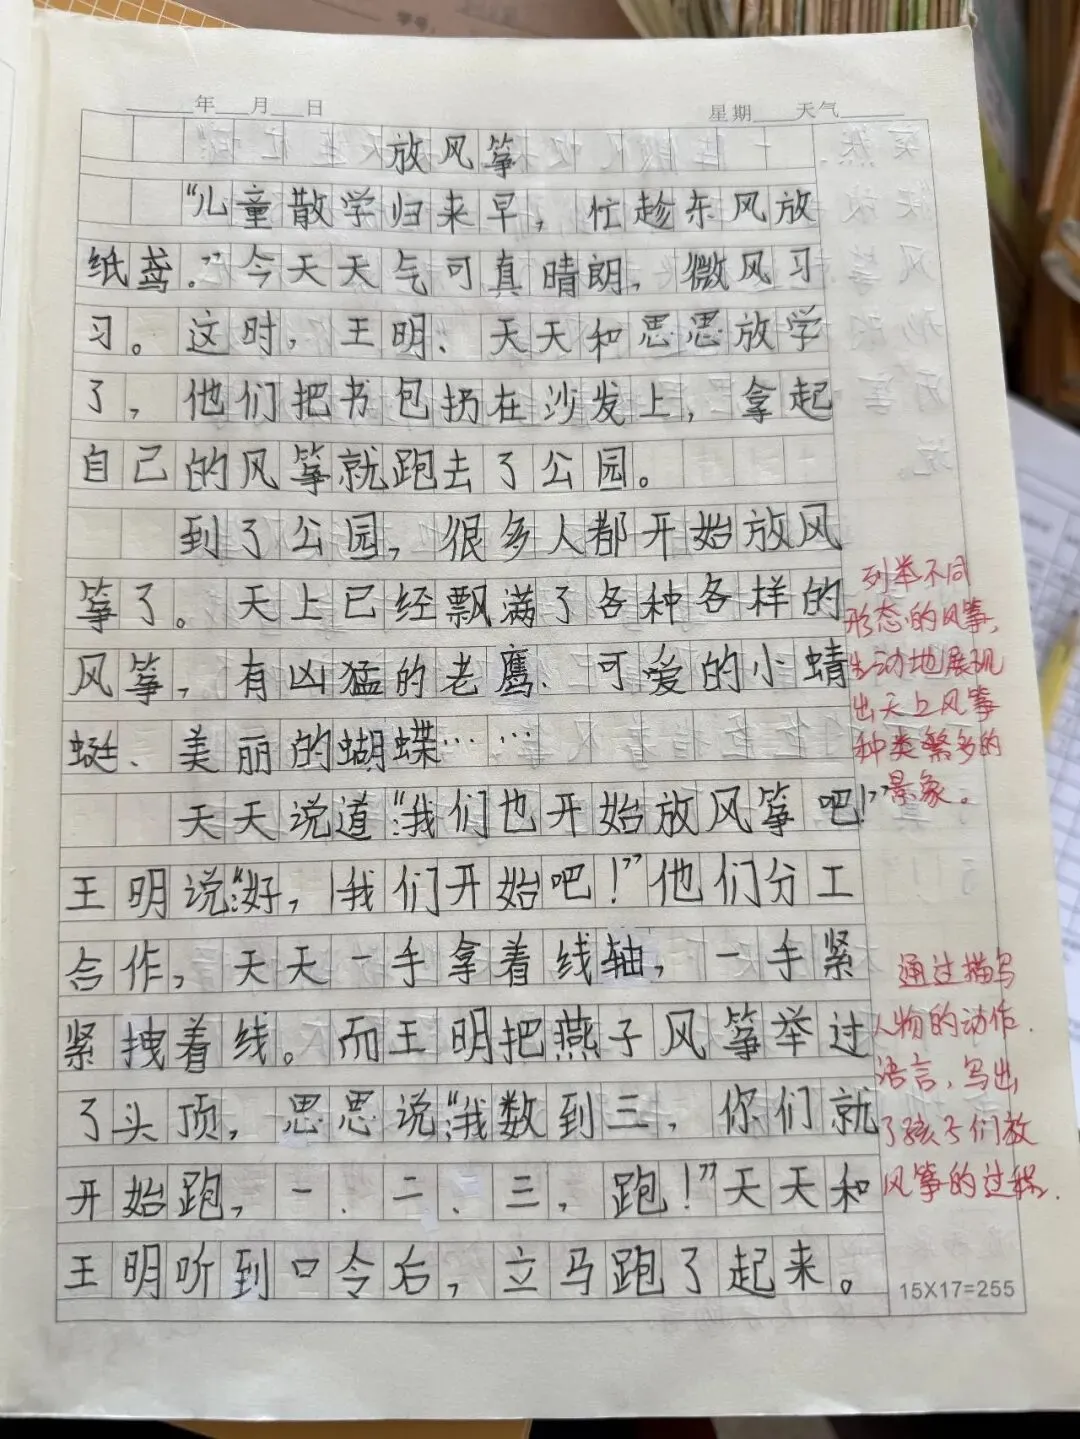 年 月 日 星期 天气
放风筝
“儿童散学归来早，忙趁东风放
纸鸢。”今天天气可真晴朗，微风习
习。这时，王明、天天和思思放学
了，他们把书包扔在沙发上，拿起
自己的风筝就跑去了公园。
到了公园，很多人都开始放风
筝了。天上已经飘满了各种各样的
风筝，有凶猛的老鹰、可爱的小蜻
蜓、美丽的蝴蝶……
天天说道：“我们也开始放风筝吧！”
王明说：“好，我们开始吧！”他们分工
合作，天天一手拿着线轴，一手紧
紧拽着线。而王明把燕子风筝举过
了头顶，思思说：“我数到三，你们就
开始跑，一、二、三，跑！”天天和
王明听到口令后，立马跑了起来。
列举不同
形态的风筝，
生动地展现
出天上风筝
种类繁多的
景象。
通过描写
人物的动作、
语言，写出
了孩子们放
风筝的过程。
15X17=255